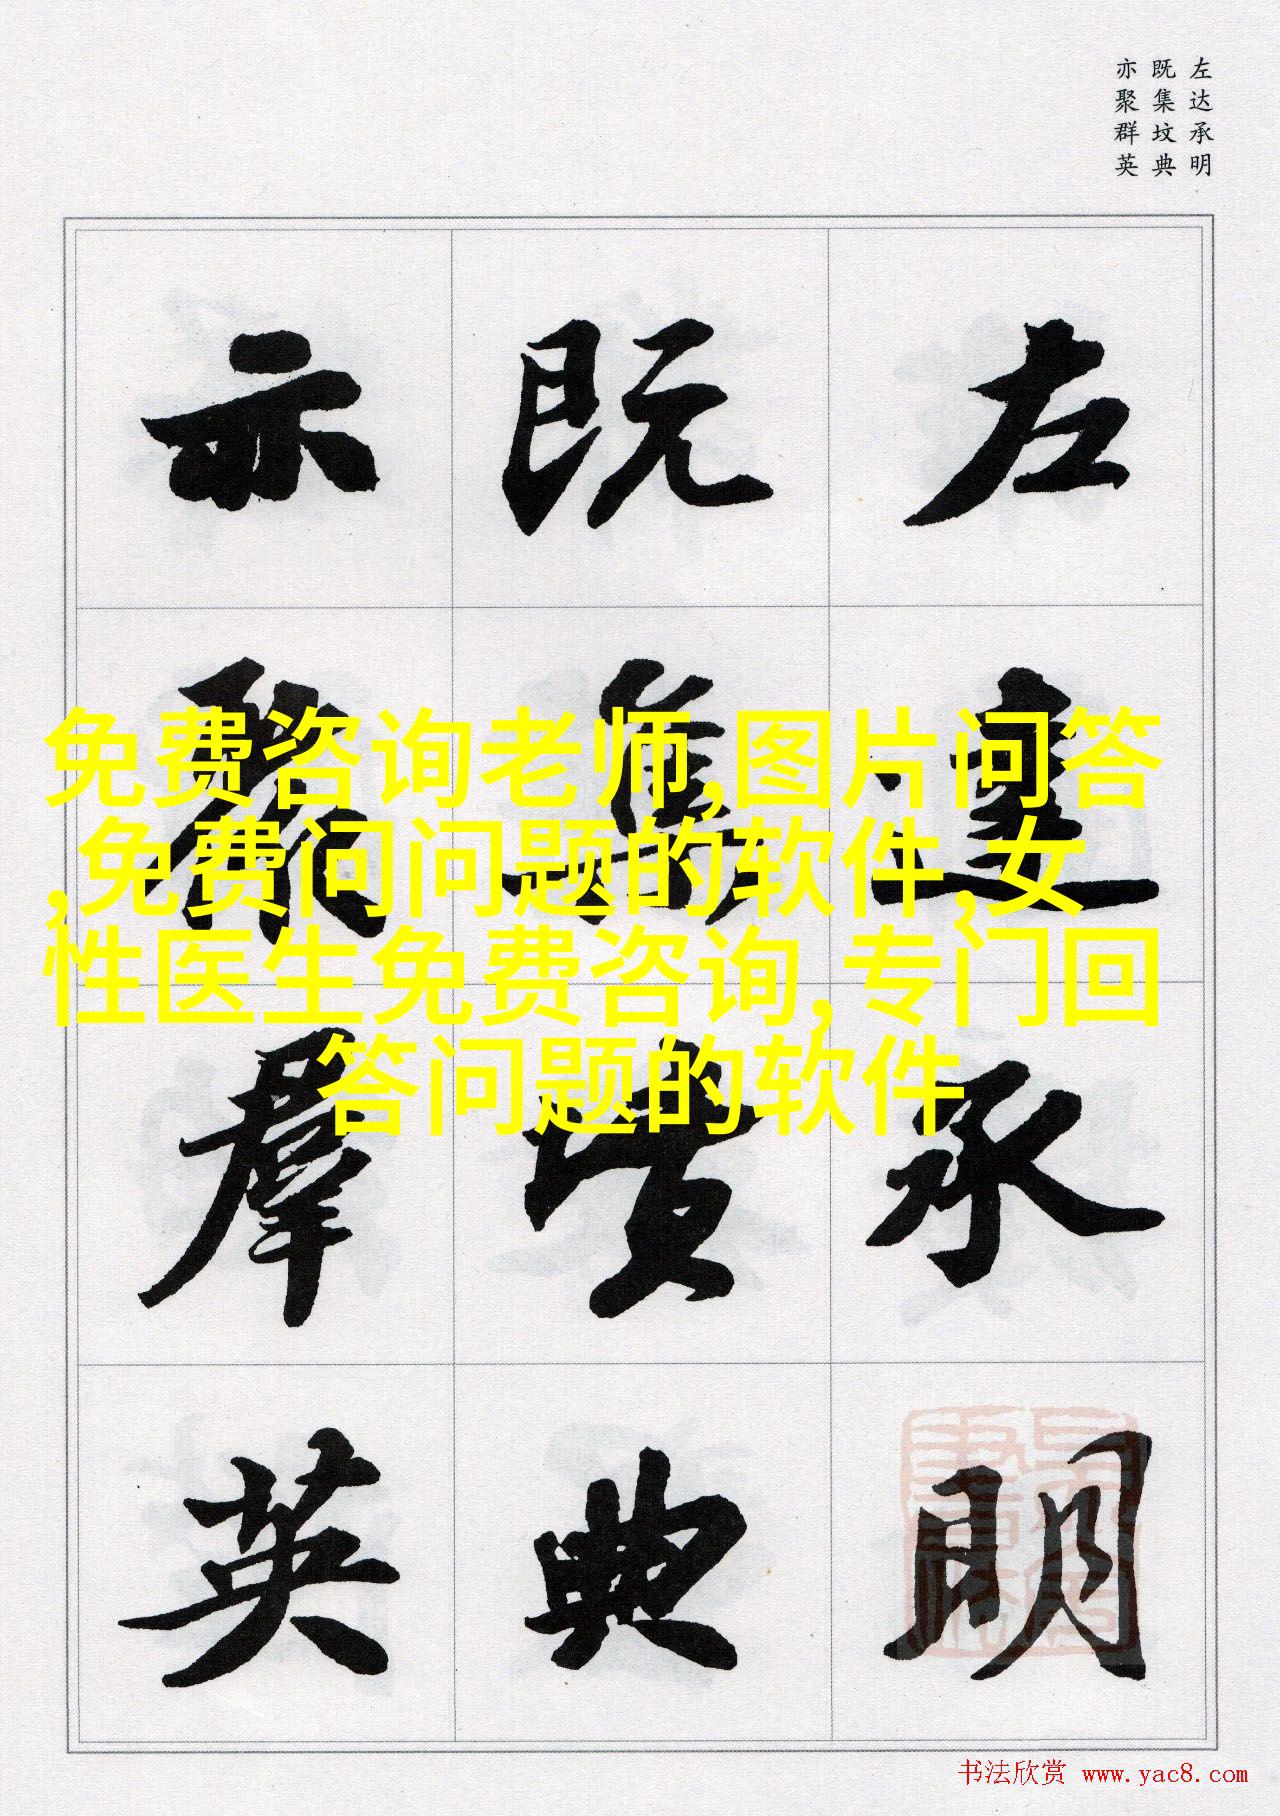 左达承明
既集坟典
亦聚群英
左達承明
既集墳典
亦聚羣英
免费咨询老师,图片问答
,免费问问题的软件,女
性医生免费咨询,专门回
答问题的软件
书法欣赏 www.yac8.com